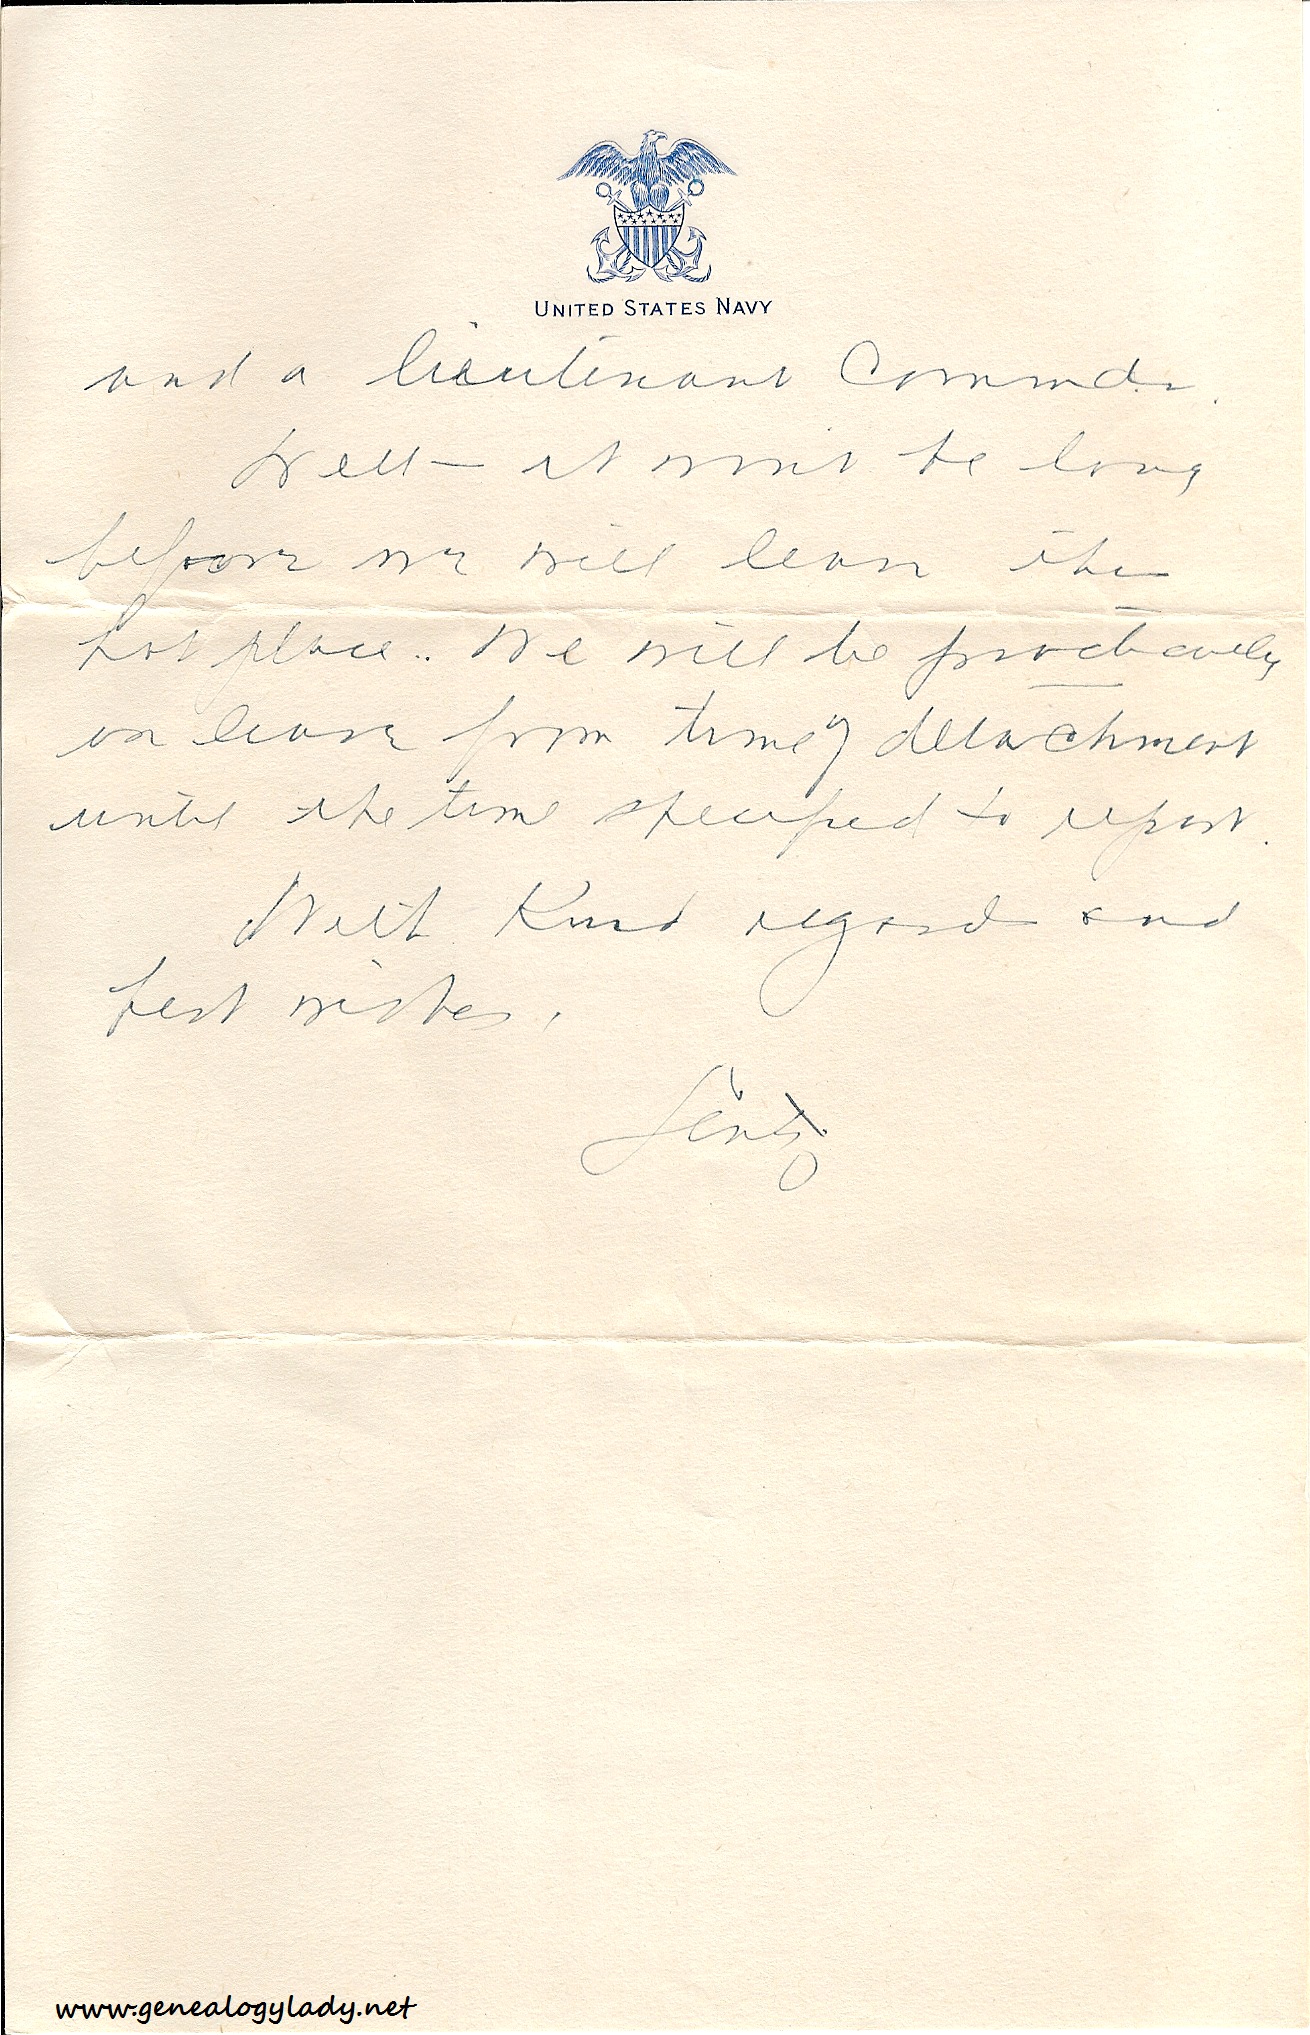 UNITED STATES NAVY
and a lieutenant Commdr.
Well — it won't be long
before we will leave this
hot place.. We will be practically
on leave from time of detachment
until the time specified to report.
With Kind regards and
best wishes,
www.genealogylady.net